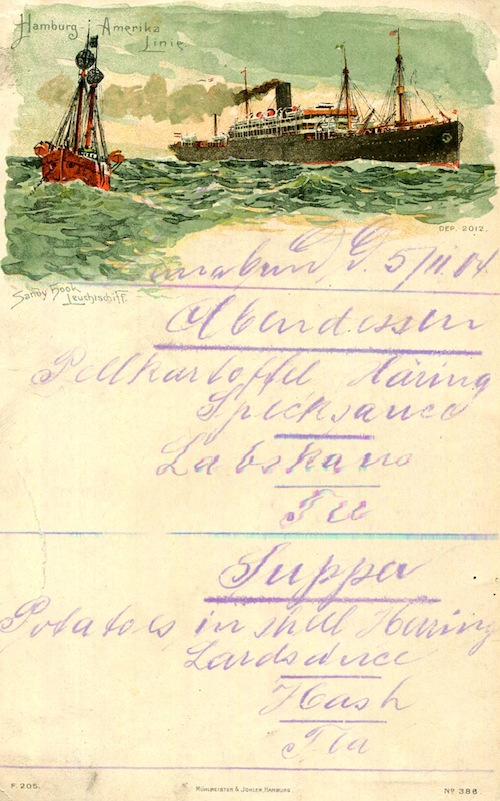 Hamburg-Amerika
Linie.
DEP. 2012.
5/11.04
Sandy Hook
Leuchtschiff.
Abendessen
Pellkartoffel Häring
Specksauce
Labskaus
Tee
Supper
Potatoes in shell Hering
Lardsauce
Hash
Tea
F. 205.
MÜHLMEISTER & JOHLER, HAMBURG
Nº 386